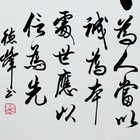 为人當以
誠為本
處世應以
信為先
德峰书